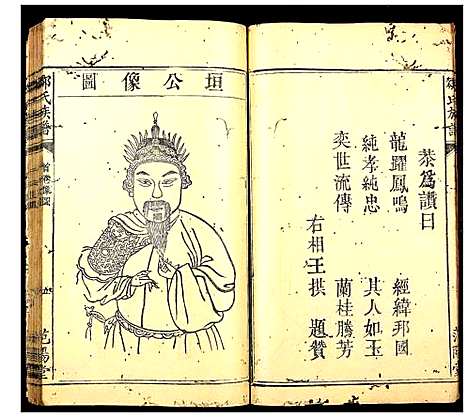 恭爲讚曰
龍躍鳳鳴 經緯邦國
純孝純忠 其人如玉
奕世流傳 蘭桂騰芳
右相王拱 題贊
垣公像圖
鄒氏族譜
范陽堂